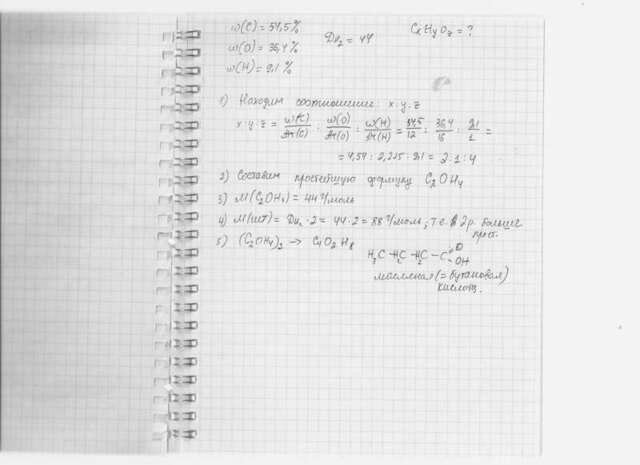 w(C) = 54,5%
w(O) = 36,4%
w(H) = 9,1%
DH₂ = 44
CxHyOz = ?
1) Находим соотношение x:y:z
x:y:z = w(C)/Ar(C) : w(O)/Ar(O) : w(H)/Ar(H) = 54,5/12 : 36,4/16 : 9,1/1 =
= 4,54 : 2,275 : 9,1 = 2:1:4
2) Составим простейшую формулу C₂OH₄
3) M(C₂OH₄) = 44 г/моль
4) M(ист) = DH₂ · 2 = 44 · 2 = 88 г/моль, т.е. в 2 р. больше
прост.
5) (C₂OH₄)₂ → C₄O₂H₈
H₃C-H₂C-H₂C-C
O
OH
масляная (= бутановая)
кислота.